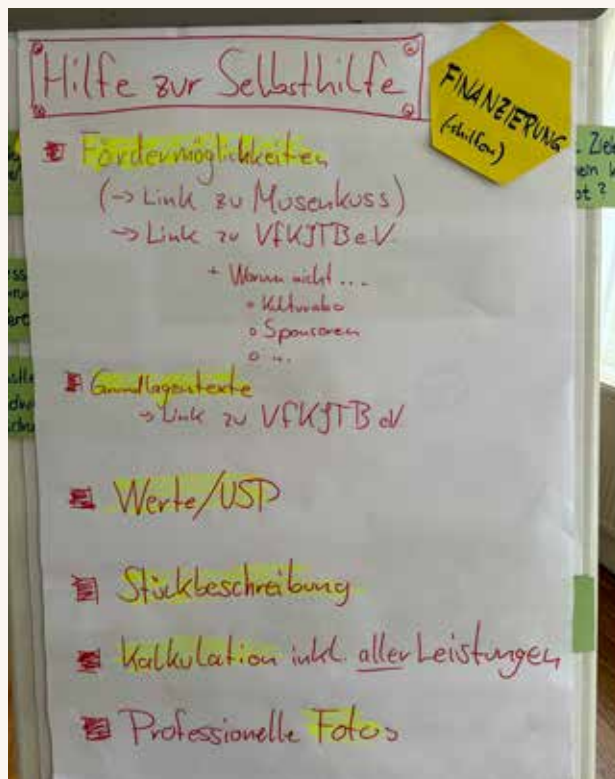 Hilfe zur Selbsthilfe
FINANZIERUNG
(-shilfen)
Fördermöglichkeiten
(-> Link zu Musenkuss)
-> Link zu VfKJTB e.V.
+ Warum nicht ...
Kulturabo
Sponsoren
...
Grundlagentexte
-> Link zu VfKJTB eV
Werte/USP
Stückbeschreibung
Kalkulation inkl. aller Leistungen
Professionelle Fotos